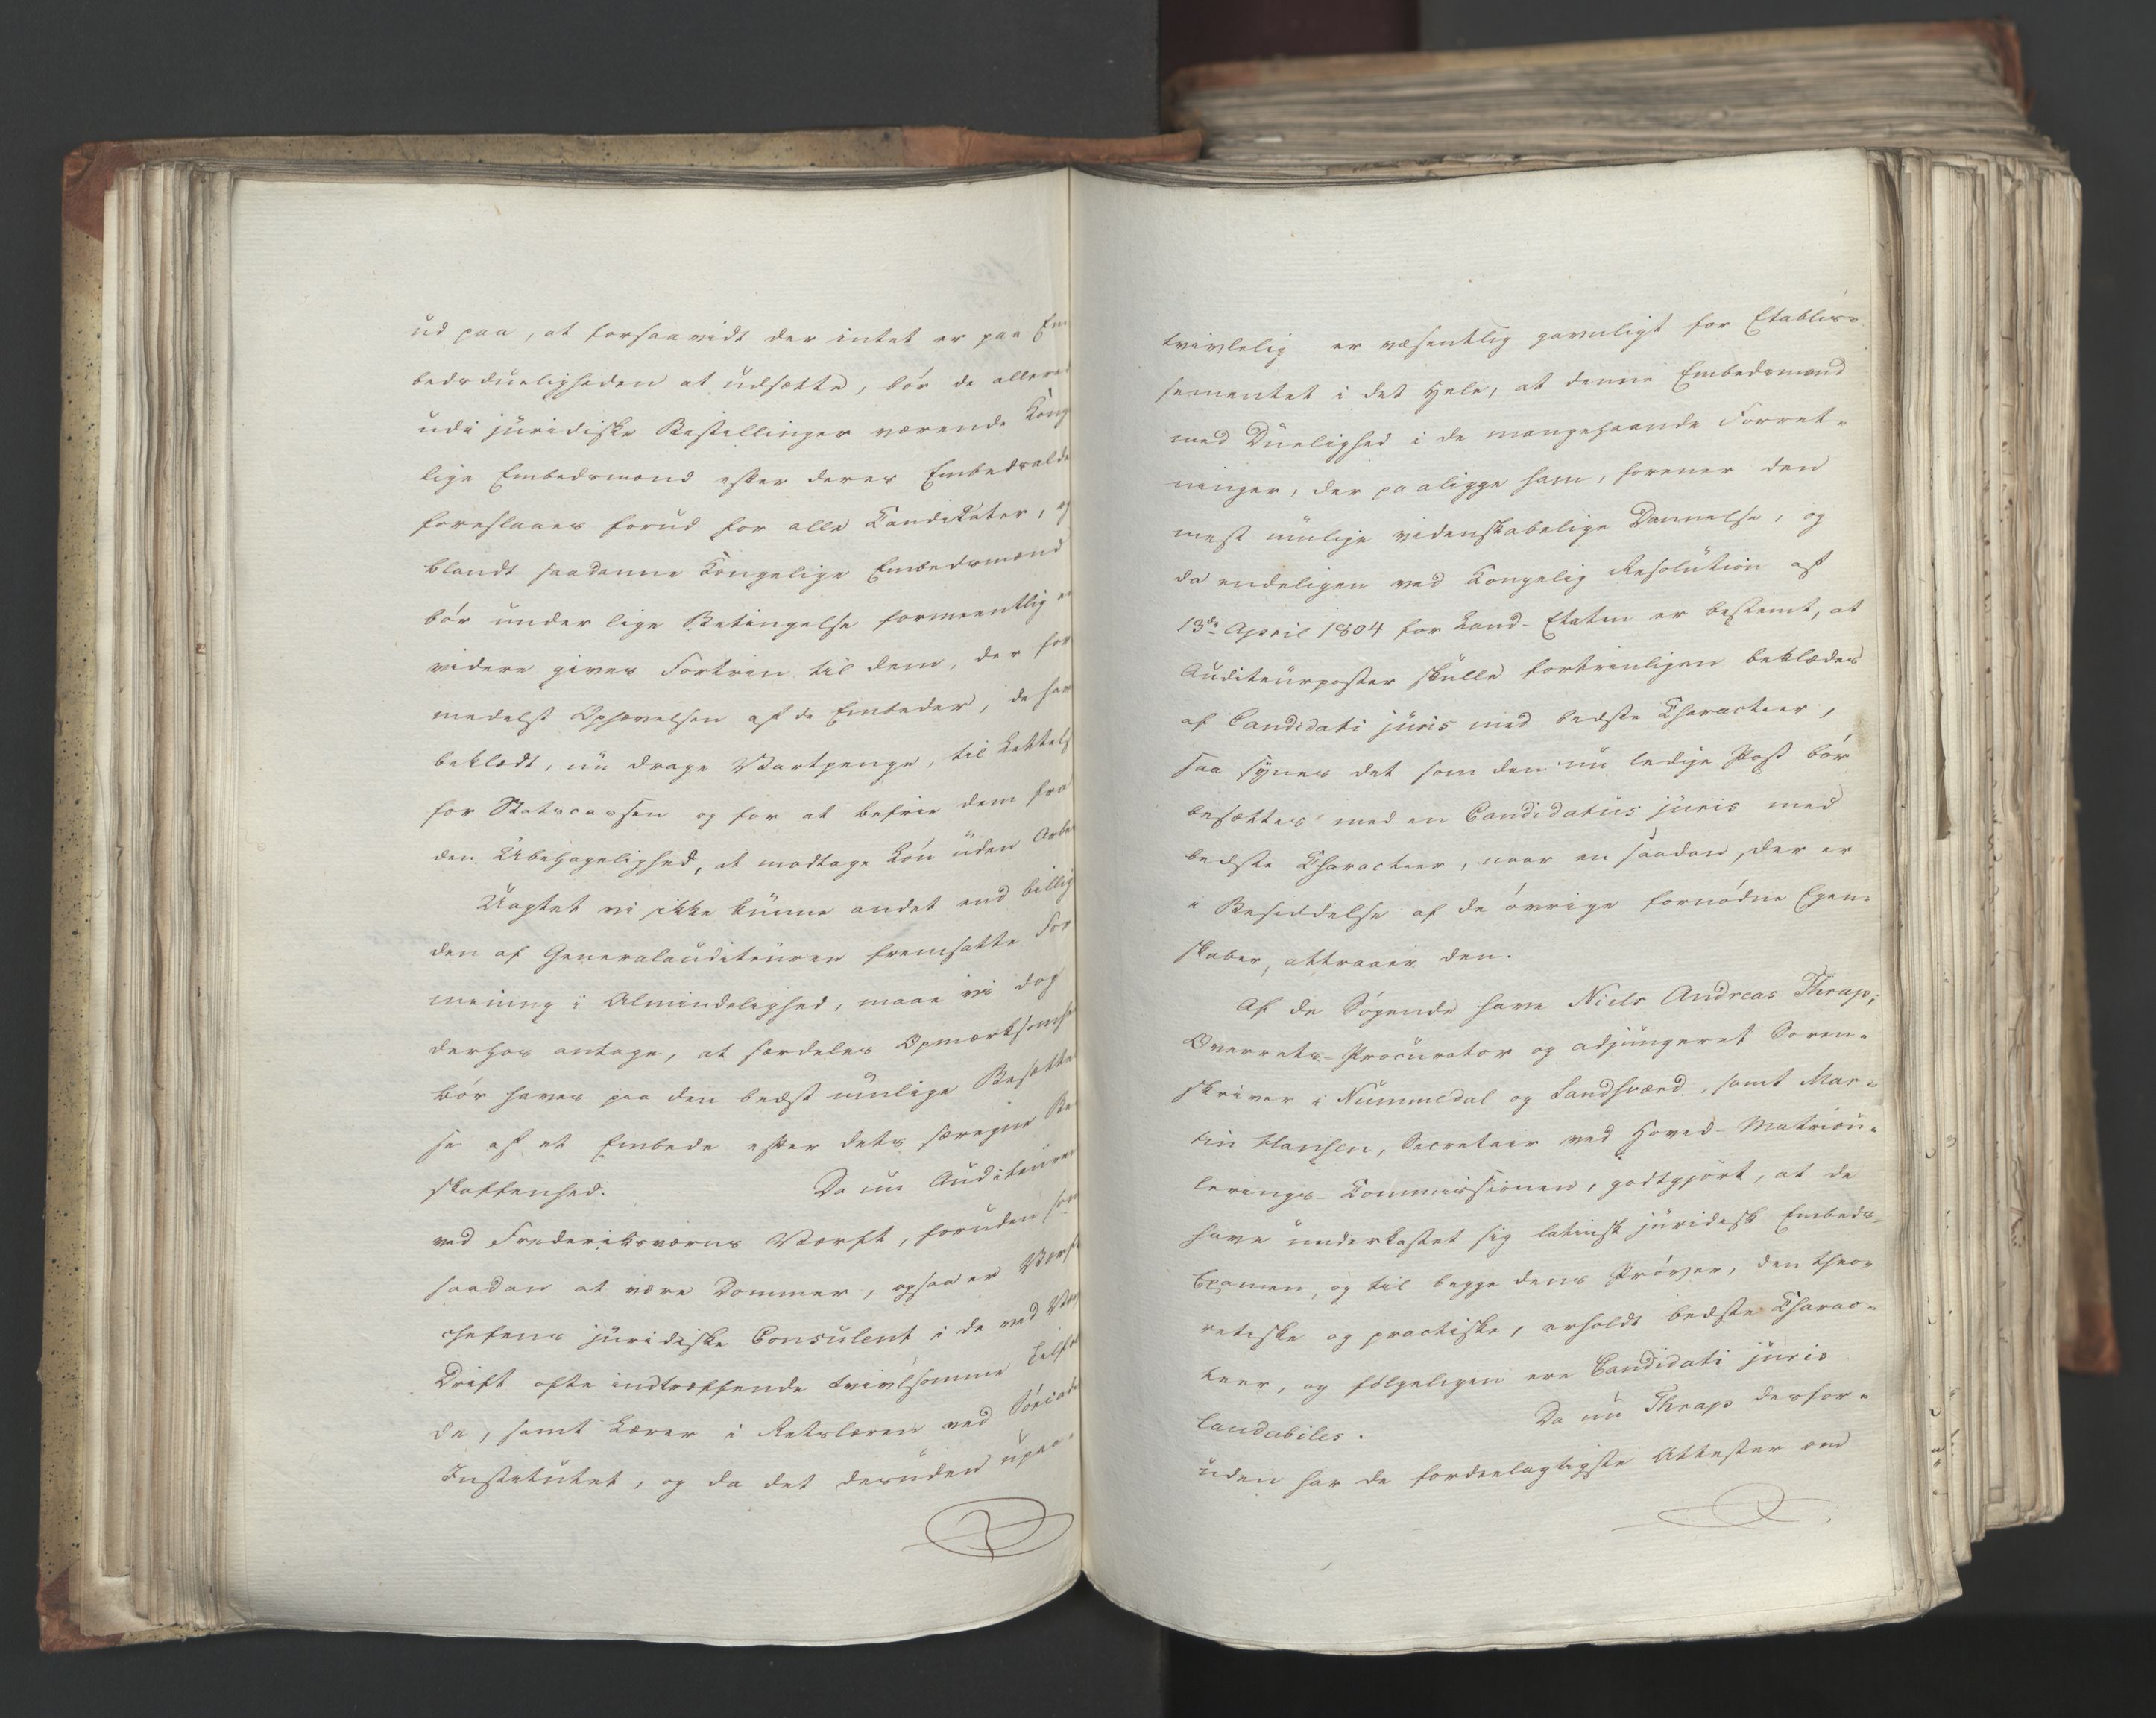 ud paa, at forsaavidt der intet er paa Em
bedsdueligheden at udsætte, bør de allere
udi juridiske Bestillinger værende Kong
lige Embedsmænd efter deres Embedsalde
foreslaaes forud for alle Candidater, og
blandt saadanne Kongelige Embedsmænd
bør under lige Betingelse formeentlig
videre gives Fortrin til dem, der for
medelst Ophævelsen af de Embeder, de hav
beklædt, nu drage Vartpenge, til Lettels
for Statscassen og for at befrie dem fra
den Ubehagelighed, at modtage Løn uden Arbe
Uagtet vi ikke kunne andet end billig
den af Generalauditeuren fremsatte For
mening i Almindelighed, maae vi dog
derhos antage, at særdeles Opmærksomhe
bør haves paa den bedst mulige Besætte
se af et Embede efter dets særegne Be
skaffenhed. Da nu Auditeuren
ved Frederiksværns Værft, foruden som
saadan at være Dommer, ogsaa er Værft
chefens juridiske Consulent i de ved Vær
Drift ofte indtræffende tvivlsomme Tilfæl
de, samt Lærer i Retslæren ved Søecade
Institutet, og da det desuden upaa-
tvivlelig er væsentlig gavnligt for Etablis-
sementet i det Hele, at denne Embedsmand
med Duelighed i de mangehaande Forret-
ninger, der paaligge ham, forener den
mest mulige videnskabelige Dannelse, og
da endeligen ved Kongelig Resolution af
13de April 1804 for Land-Etaten er bestemt, at
Auditeurposter skulle fortrinligen beklædes
af Candidati juris med bedste Characteer,
saa synes det som den nu ledige Post bør
besættes med en Candidatus juris med
bedste Characteer, naar en saadan, der er
i Besiddelse af de øvrige fornødne Egen-
skaber, attraaer den.
Af de Søgende have Niels Andreas Thrap,
Overrets-Procurator og adjungeret Soren-
skriver i Nummedal og Sandsværd, samt Mar-
tin Hansen, Secretair ved Hoved-Matricu-
lerings-Commissionen, godtgjort, at de
have underkastet sig latinsk juridisk Embeds-
Examen, og til begge dens Prøver, den theo-
retiske og practiske, erholdt bedste Charac-
teer, og følgeligen ere Candidati juris
laudabiles. Da nu Thrap desfor-
uden har de fordeelagtigste Attester om